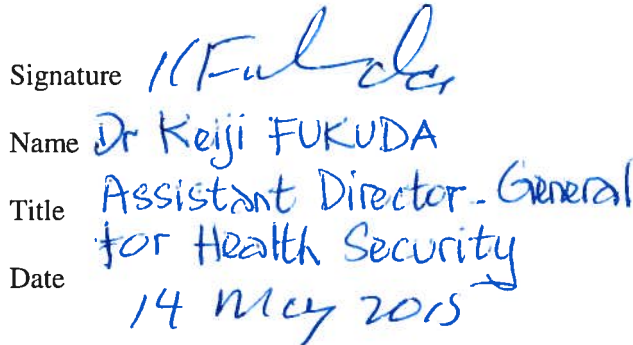 Signature KFukuda
Name Dr Keiji FUKUDA
Title Assistant Director-General
for Health Security
Date
14 May 2015